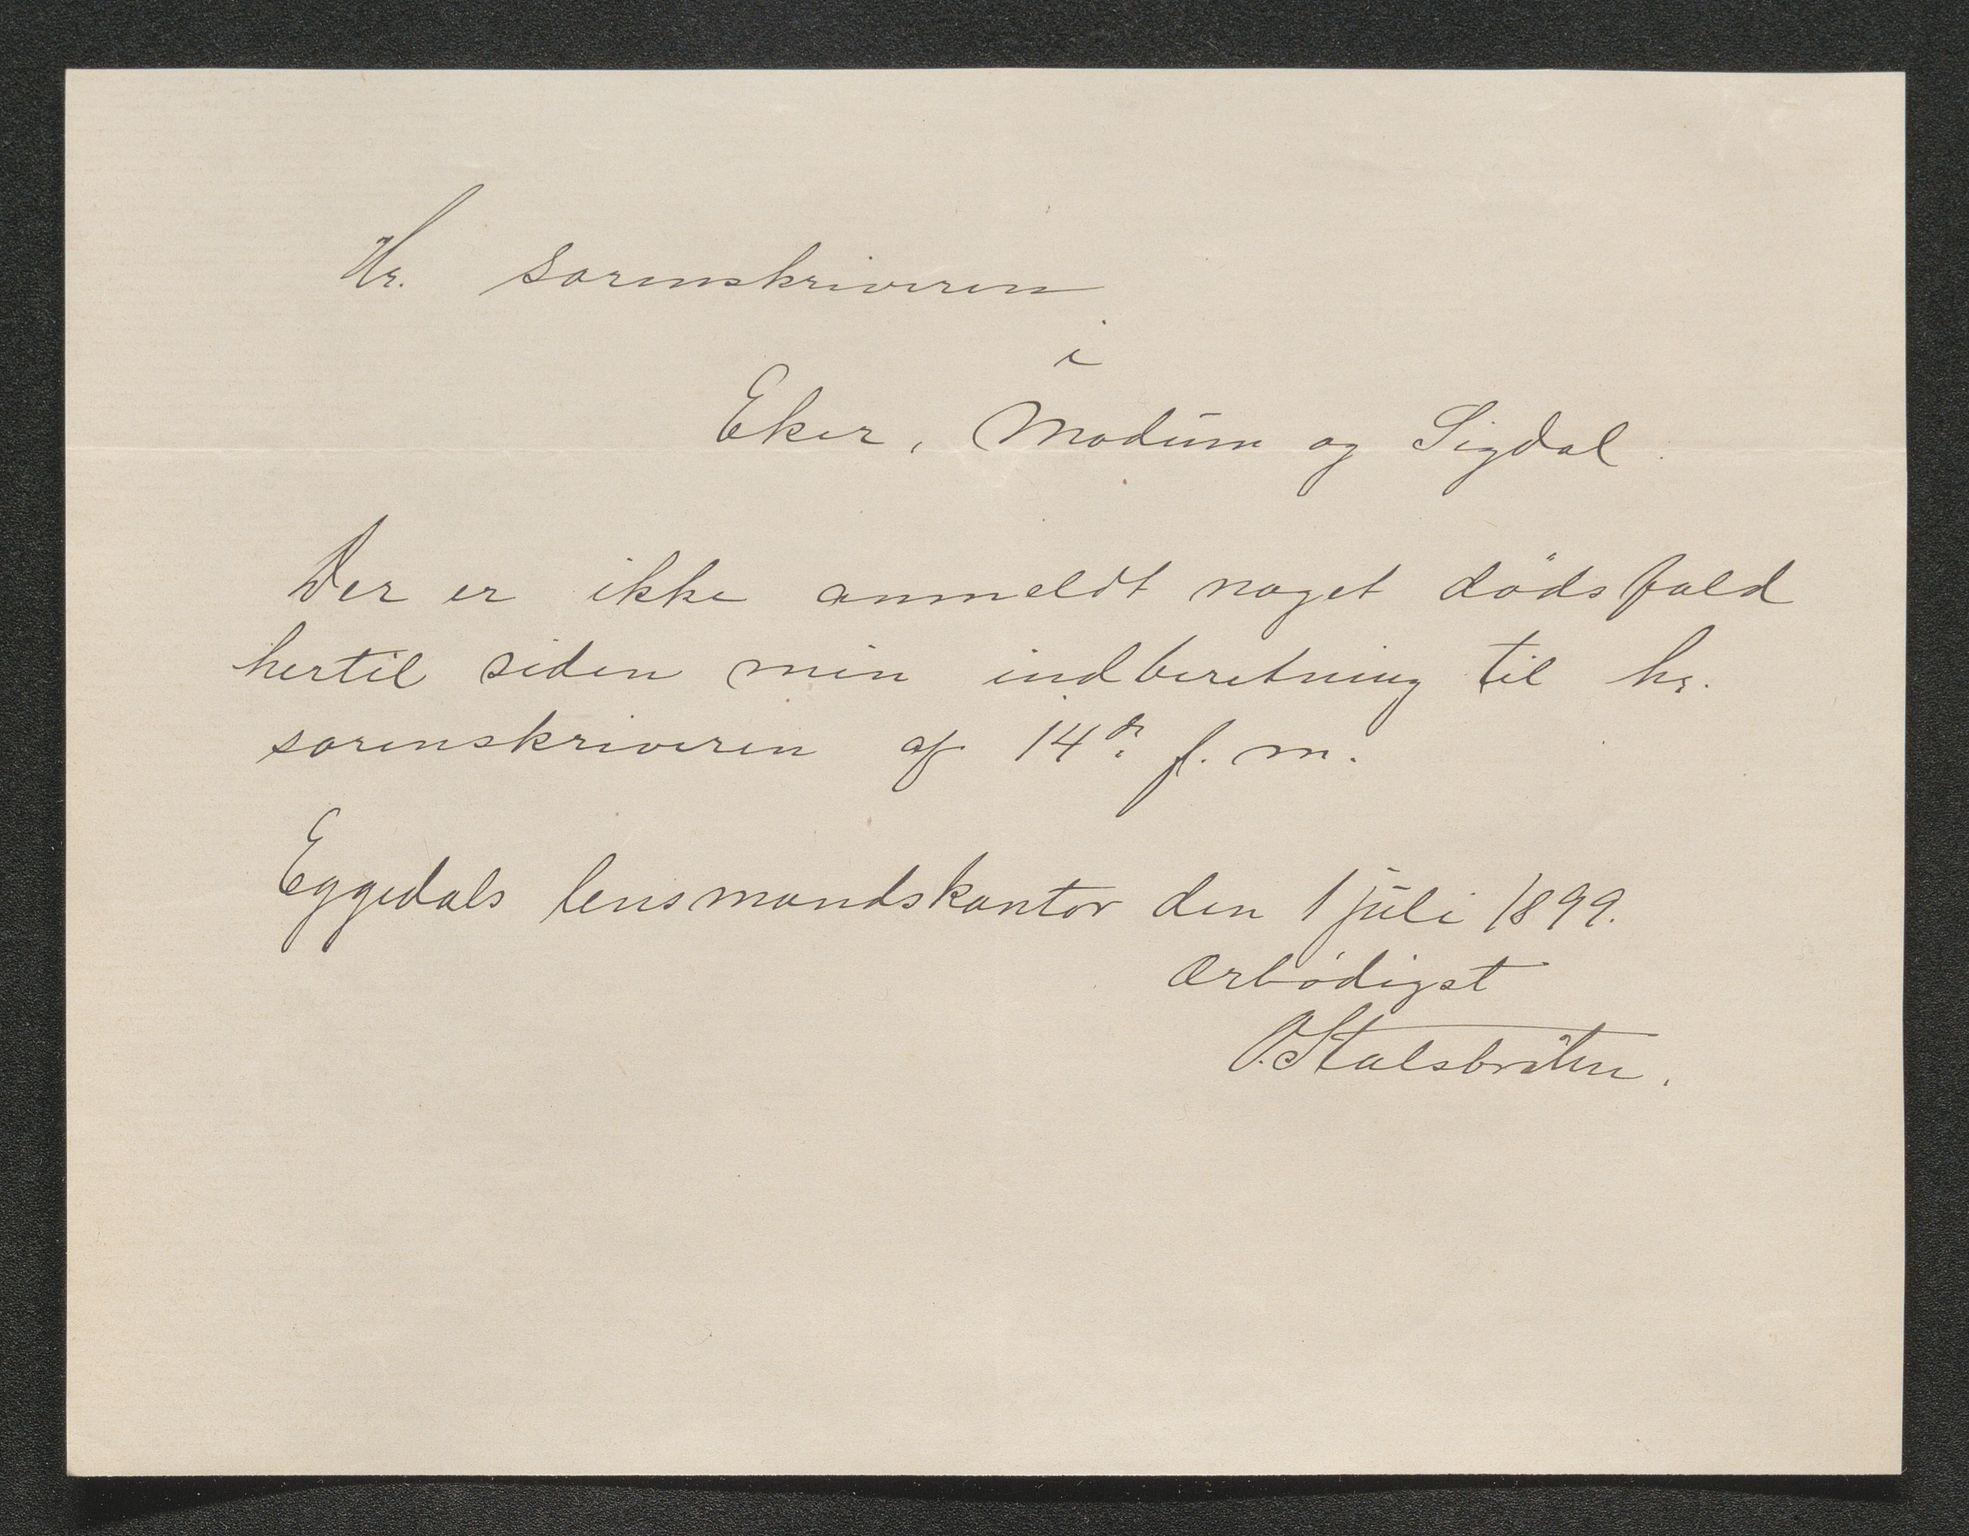 Hr. sorenskriveren
i
Eker, Modum og Sigdal.
Der er ikke anmeldt noget dödsfald
hertil siden min indberetning til hr.
sorenskriveren af 14de f. m.
Eggedals lensmandskontor den 1 juli 1899.
Ærbødigst
O. Stalsbråten.